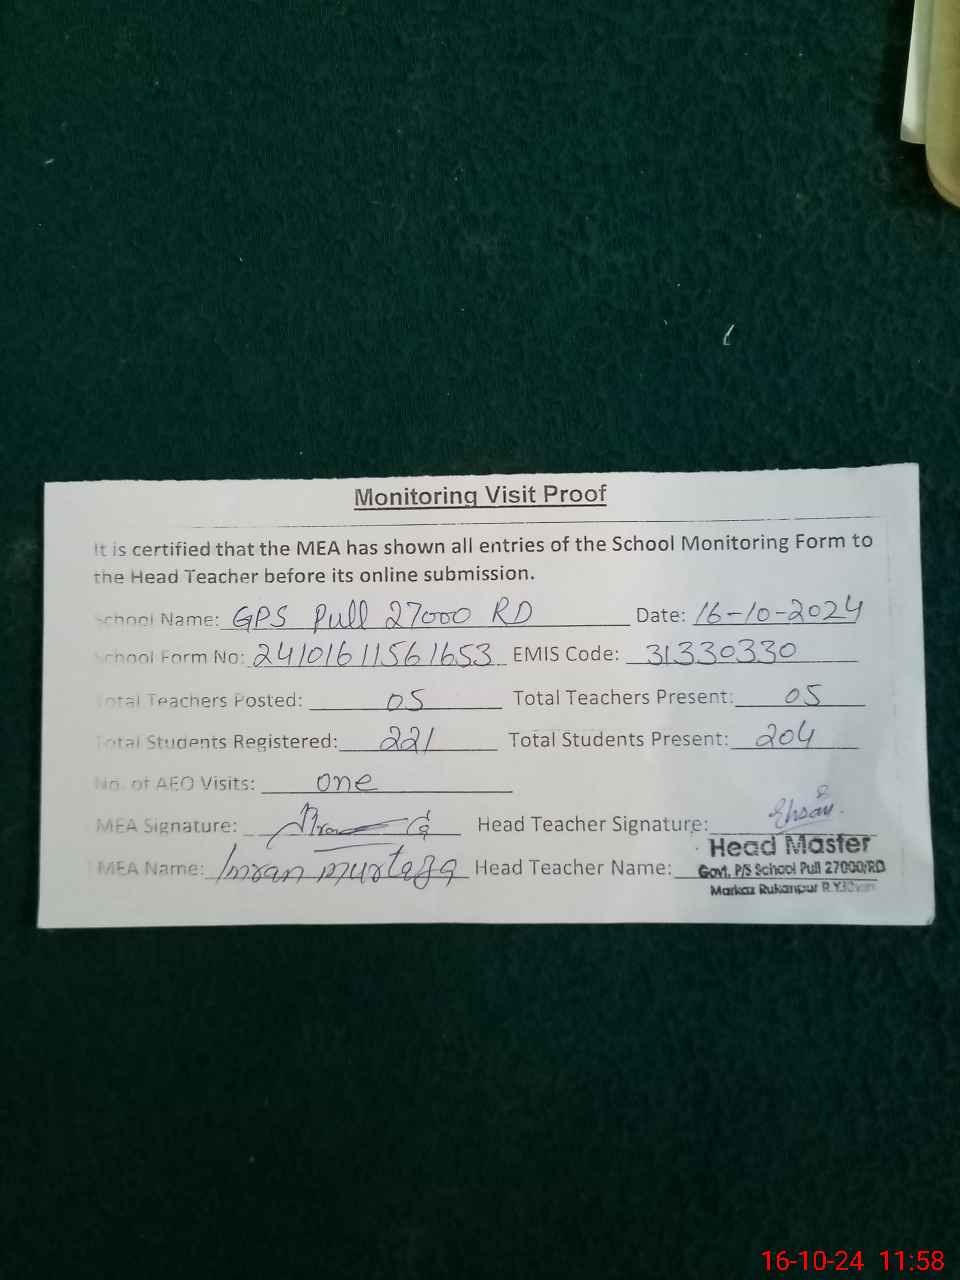 Monitoring Visit Proof
It is certified that the MEA has shown all entries of the School Monitoring Form to
the Head Teacher before its online submission.
School Name: GPS Pull 27000 RD Date: 16-10-2024
School Form No: 24101611561653 EMIS Code: 31330330
Total Teachers Posted: 05 Total Teachers Present: 05
Total Students Registered: 221 Total Students Present: 204
No. of AEO Visits: one
MEA Signature: Head Teacher Signature: Ehsan
MEA Name: Imran murtaza Head Teacher Name:
Head Master
Govt. P/S School Pull 27000/RD
Markaz Rukanpur R.Y.Khan
16-10-24 11:58